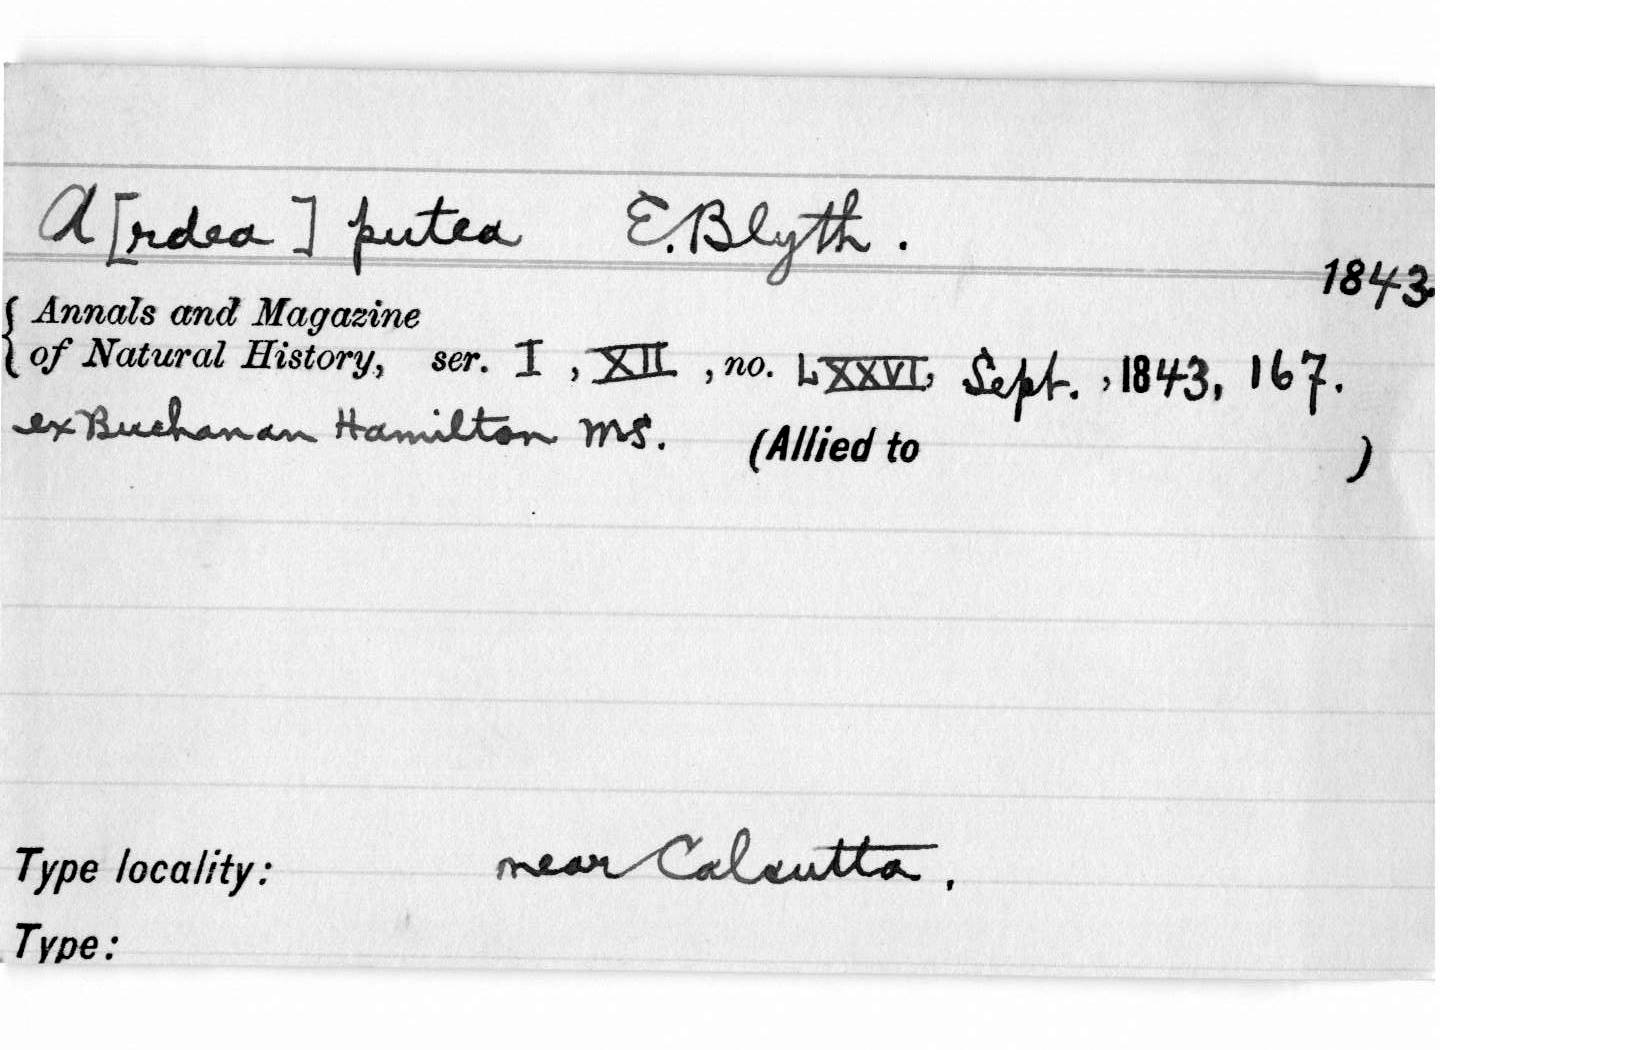 A[rdea] putea E. Blyth.
1843.
{ Annals and Magazine
of Natural History, ser. I, XII, no. LXXVI, Sept., 1843, 167.
ex Buchanan Hamilton MS. (Allied to )
Type locality: near Calcutta.
Type: